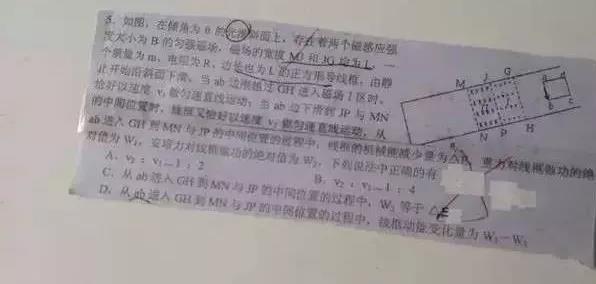 8. 如图，在倾角为 θ 的光滑斜面上，存在着两个磁感应强
度大小为 B 的匀强磁场，磁场的宽度 MJ 和 JG 均为 L，一
个质量为 m、电阻为 R、边长也为 L 的正方形导线框，由静
止开始沿斜面下滑，当 ab 边刚越过 GH 进入磁场 I 区时，
恰好以速度 v₁ 做匀速直线运动；当 ab 边下滑到 JP 与 MN
的中间位置时，线框又恰好以速度 v₂ 做匀速直线运动，从
ab 进入 GH 到 MN 与 JP 的中间位置的过程中，线框的机械能减少量为 △E，重力对线框做功的绝
对值为 W₁，安培力对线框做功的绝对值为 W₂，下列说法中正确的有
A. v₂ : v₁=1 : 2
B. v₂ : v₁=1 : 4
C. 从 ab 进入 GH 到 MN 与 JP 的中间位置的过程中，W₂ 等于 △E
D. 从 ab 进入 GH 到 MN 与 JP 的中间位置的过程中，线框动能变化量为 W₁-W₂
M J G
b c
N P H